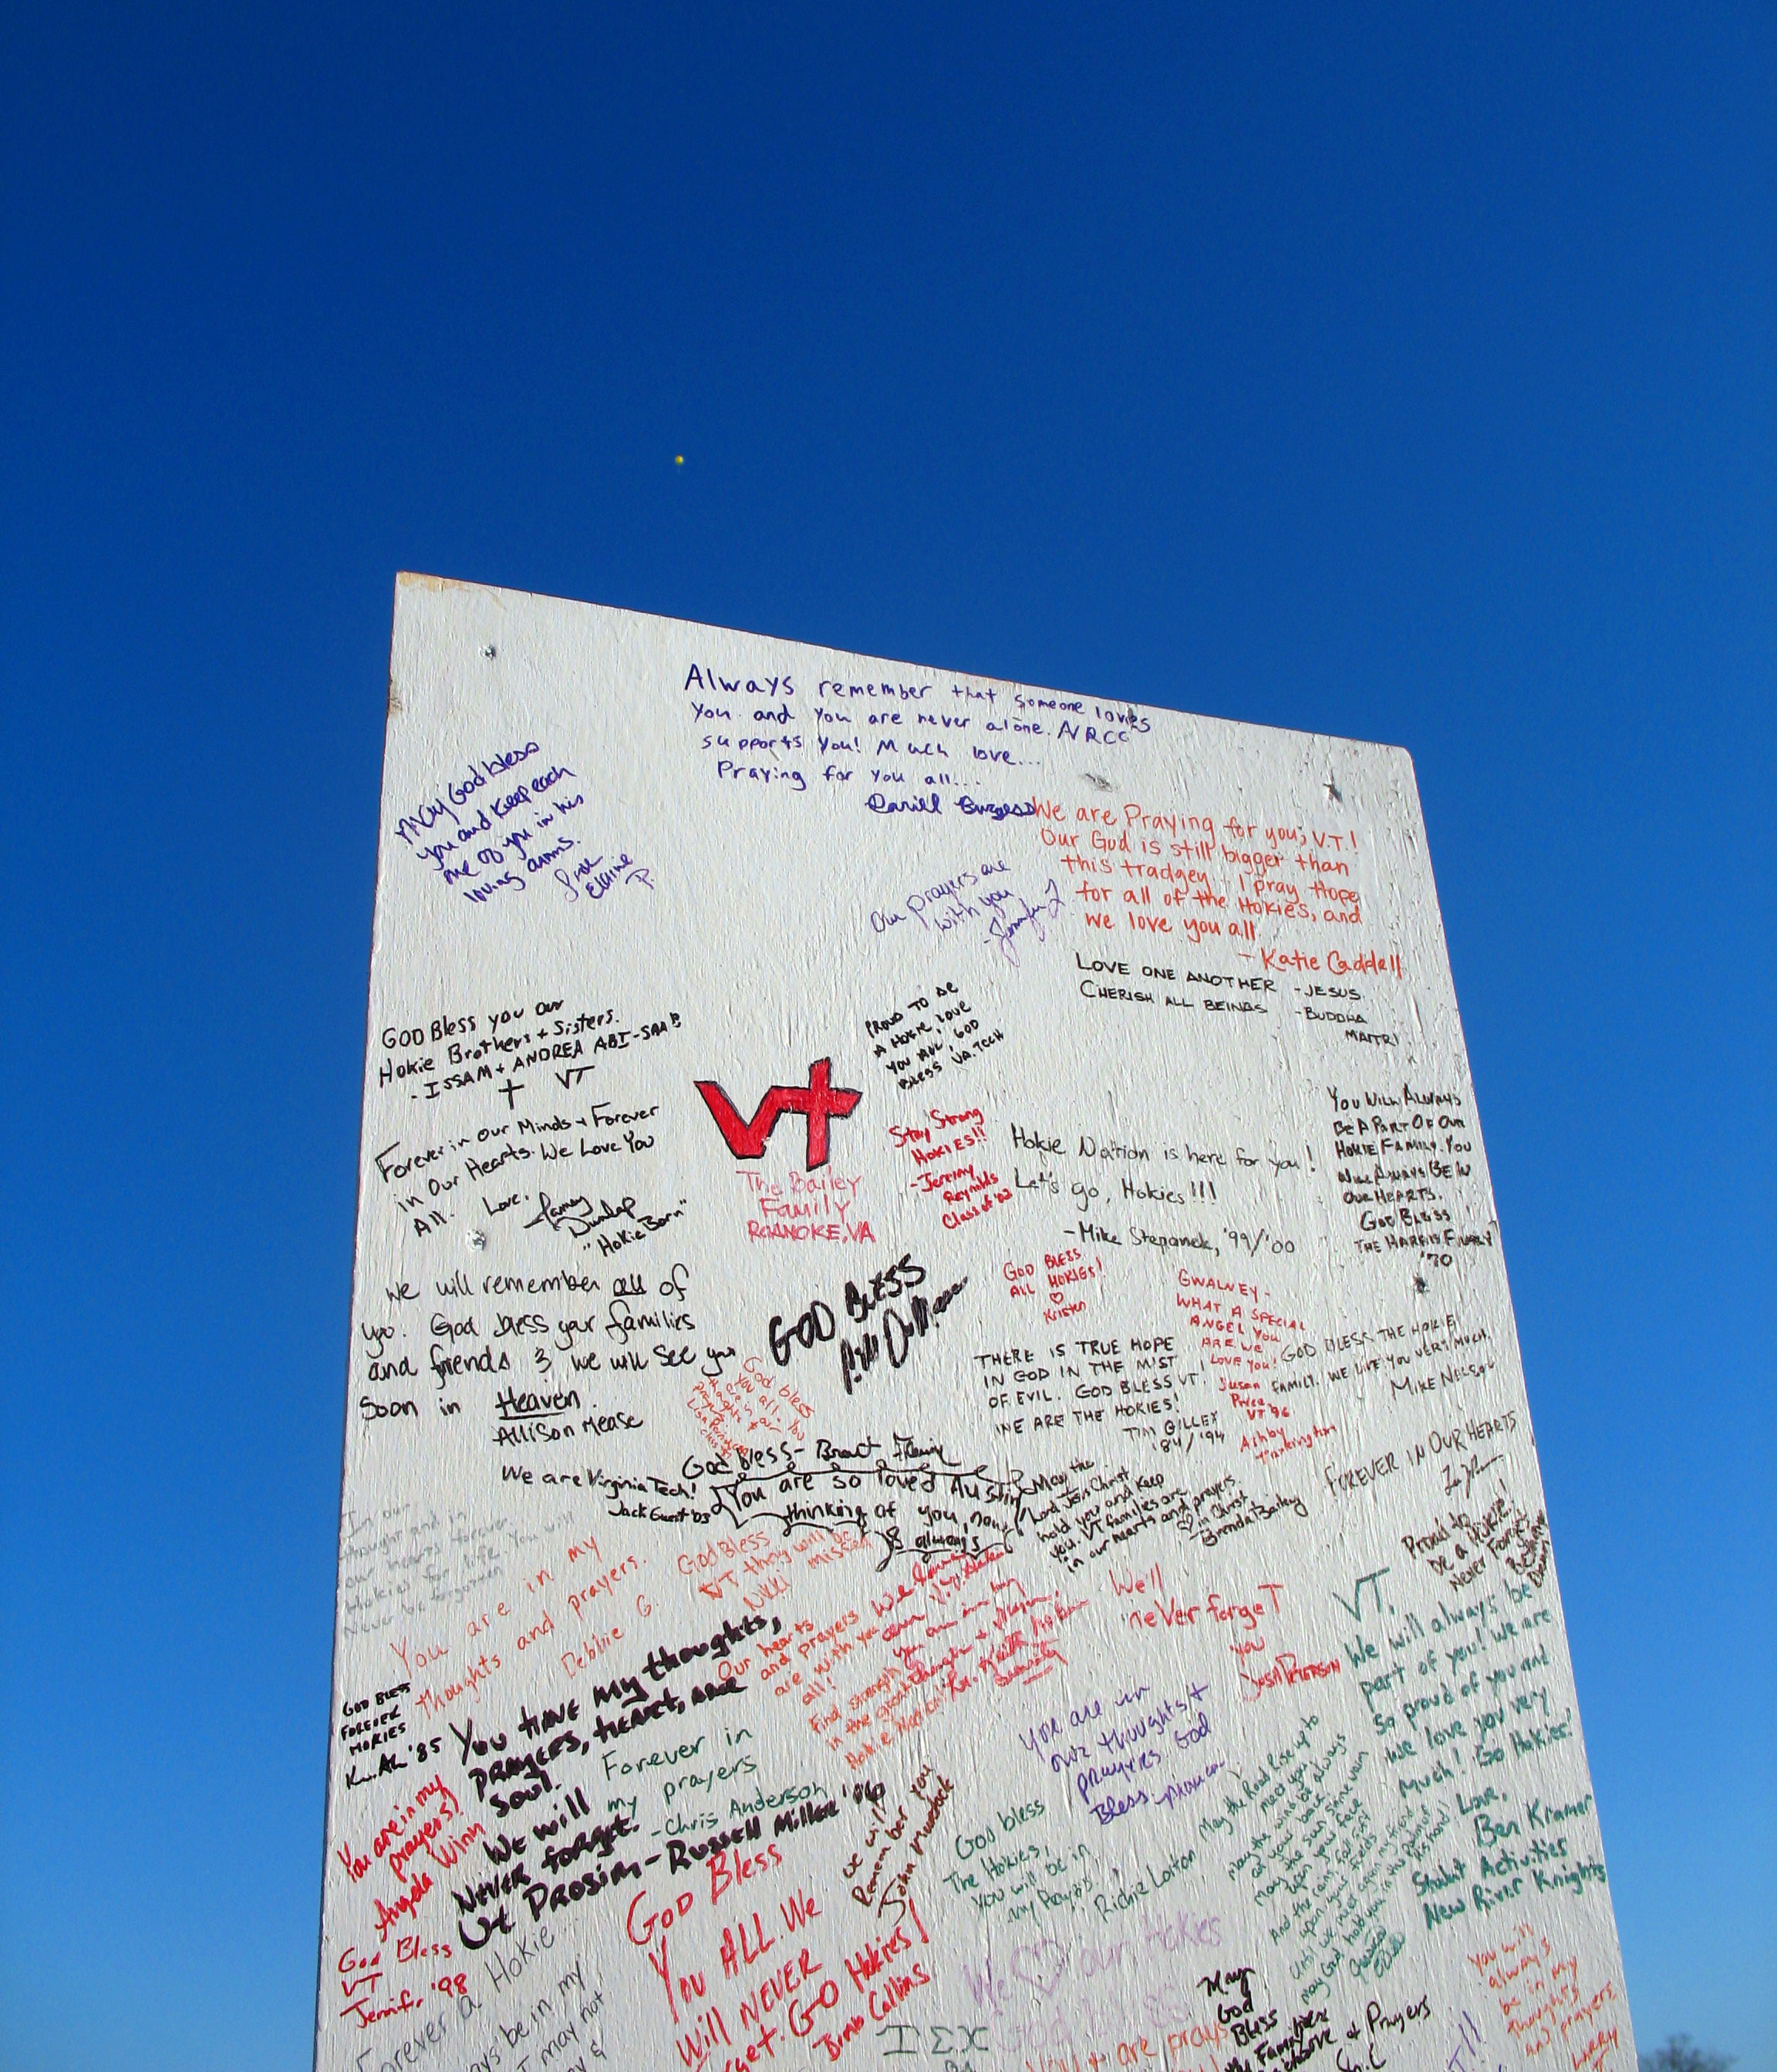 Always remember that someone loves
you and you are never alone. NRCC
supports you! Much love...
Praying for you all...
May God bless
you and keep each
one of you in his
loving arms.
Love
Elaine
P.
We are Praying for you, V.T.!
Our God is still bigger than
this tradgey. I pray Hope
for all of the Hokies, and
we love you all
- Katie Caddell
Our prayers are
with you
LOVE ONE ANOTHER - JESUS
CHERISH ALL BEINGS - BUDDHA
MAITRI
GOD Bless you our
Hokie Brothers + Sisters.
- ISSAM + ANDREA ABI-SAAB
VT
PROUD TO BE
A HOKIE, LOVE
YOU ALL, GOD
BLESS VA. TECH
VT
The Bailey
Family
ROANOKE, VA
Forever in Our Minds + Forever
in Our Hearts. We Love You
All. Love,
Dunlap
"Hokie Born"
Stay Strong
HOKIES!!
- Jeremy
Reynolds
Class of '02
Hokie Nation is here for you!
Let's go, Hokies!!!
- Mike Stepanek, '99/'00
YOU WILL ALWAYS
BE A PART OF OUR
HOKIE FAMILY. YOU
WILL ALWAYS BE IN
OUR HEARTS.
GOD BLESS
THE HARRIS FAMILY
'70
We will remember all of
you. God bless your families
and friends & we will see you
Soon in Heaven.
Allison Mease
GOD BLESS
GOD BLESS
ALL HOKIES!
Kristen
GWALNEY -
WHAT A SPECIAL
ANGEL YOU
ARE. WE
LOVE YOU!
Susan
Price
VT '96
Ashby
THERE IS TRUE HOPE
IN GOD IN THE MIST
OF EVIL. GOD BLESS VT!
WE ARE THE HOKIES!
TIM GILLEY
'84/'94
GOD BLESS THE HOKIE
FAMILY. WE LOVE YOU VERY MUCH.
MIKE NELSON
God bless
you all. You
are in our
thoughts +
prayers
God bless - Brent
We are Virginia Tech!
Jack Guest '03
You are so loved Austin
thinking of you, now
& always
May the
Lord Jesus Christ
hold you and keep
you. VT families are
in our hearts and prayers.
in Christ
Brenda Bailey
FOREVER IN OUR HEARTS
In our
thought and in
our hearts forever.
Hokies for life. You will
Never be forgotten
You are in my
thoughts and prayers.
Debbie G.
God Bless
VT they will be
missed
Nikki
Our hearts
and prayers
are with you
all!
Find strength
in the great
Hokie Nation!
We'll
neVer forgeT
you
Josh PETERSON
Proud to
be a Hokie!
Never Forget
VT,
We will always be
part of you! We are
so proud of you and
we love you very
much! Go Hokies!
Love,
Ben Kramer
Student Activities
New River Knights
GOD BLESS
FOREVER
HOKIES
'85
You HAVE My thoughts,
PRAYERS, HEART, AND
SOUL.
We will
NEVER forget.
Ut Prosim - Russell Miller '06
Forever in
my prayers
- Chris Anderson
You are in my
prayers!
Angela Winn
You are in
our thoughts +
prayers. God
Bless
we will
Remember you
John Murdock
God bless
The Hokies,
you will be in
my Prayers!
Richie Loiton
May the Road Rise up to
meet you
May the wind be always
at your back
May the sun shine warm
upon your face
And the rains fall soft
upon your fields
Until we meet again my friend
May God hold you in the palm of
his hand
God Bless
VT
Jennifer '98
GOD Bless
You ALL. We
Will NEVER
forget. GO Hokies!
Jimb Collins
Forever a Hokie...
We our Hokies
God bless
ΙΣΧ
May
God
Bless
Love & Prayers
You will
always
be in my
thoughts
and prayers
Larry